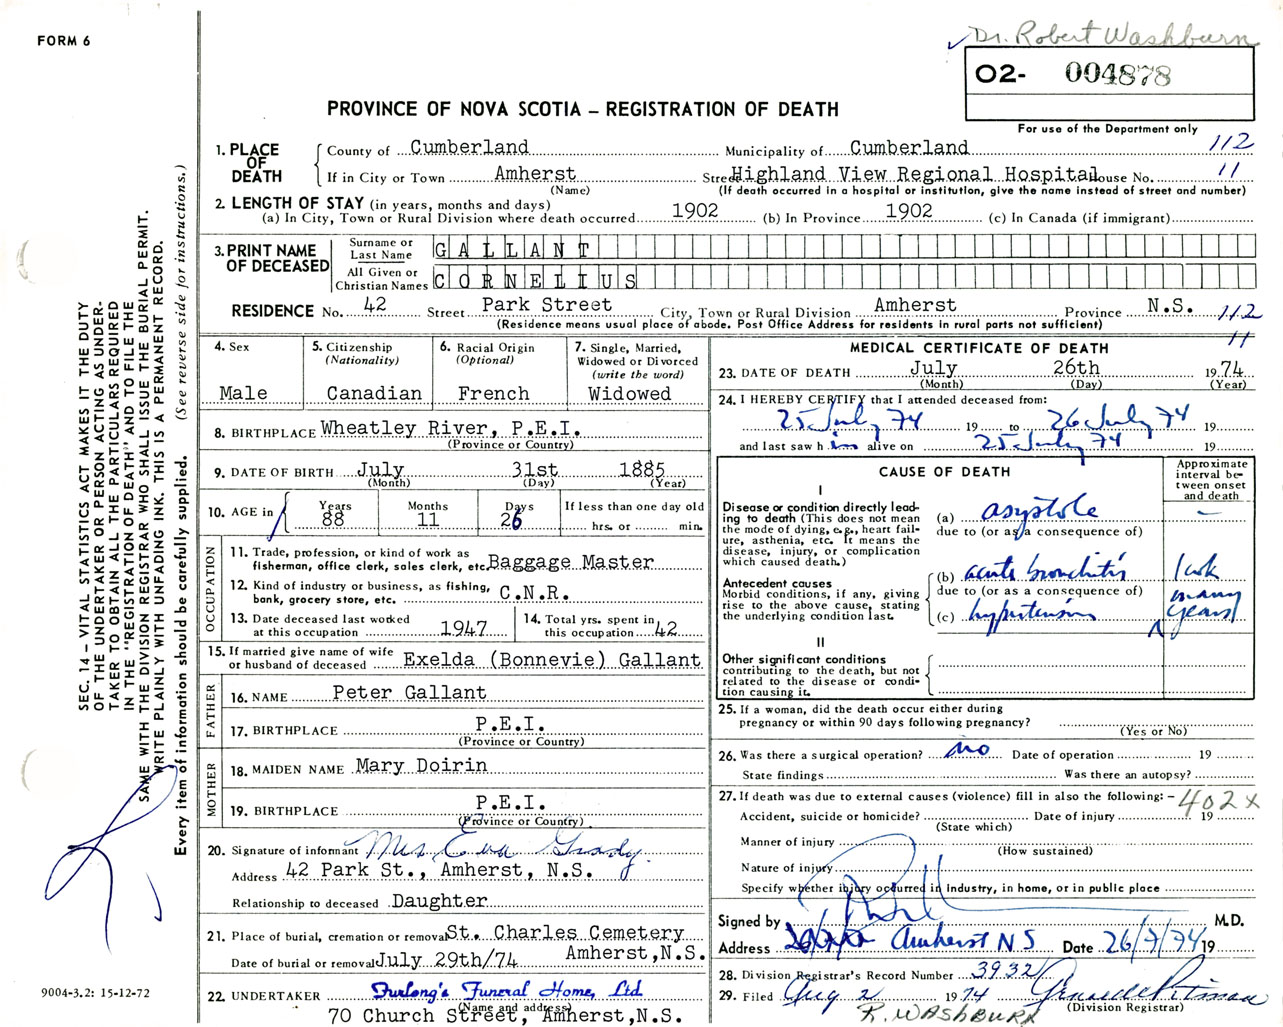 FORM 6
Dr. Robert Washburn
O2- 004878
For use of the Department only
PROVINCE OF NOVA SCOTIA – REGISTRATION OF DEATH
1. PLACE OF DEATH
County of Cumberland Municipality of Cumberland 112
If in City or Town Amherst Street Highland View Regional Hospital House No. 11
(Name) (If death occurred in a hospital or institution, give the name instead of street and number)
2. LENGTH OF STAY (in years, months and days)
(a) In City, Town or Rural Division where death occurred 1902 (b) In Province 1902 (c) In Canada (if immigrant)
3. PRINT NAME OF DECEASED
Surname or Last Name GALLANT
All Given or Christian Names CORNELIUS
RESIDENCE No. 42 Street Park Street City, Town or Rural Division Amherst Province N.S. 112
(Residence means usual place of abode. Post Office Address for residents in rural parts not sufficient) 11
4. Sex
Male
5. Citizenship
(Nationality)
Canadian
6. Racial Origin
(Optional)
French
7. Single, Married,
Widowed or Divorced
(write the word)
Widowed
8. BIRTHPLACE Wheatley River, P.E.I.
(Province or Country)
9. DATE OF BIRTH July 31st 1885
(Month) (Day) (Year)
10. AGE in
Years Months Days If less than one day old
88 11 26 hrs. or min.
OCCUPATION
11. Trade, profession, or kind of work as
fisherman, office clerk, sales clerk, etc. Baggage Master
12. Kind of industry or business, as fishing,
bank, grocery store, etc. C.N.R.
13. Date deceased last worked
at this occupation 1947
14. Total yrs. spent in
this occupation 42
15. If married give name of wife
or husband of deceased Exelda (Bonnevie) Gallant
FATHER
16. NAME Peter Gallant
17. BIRTHPLACE P.E.I.
(Province or Country)
MOTHER
18. MAIDEN NAME Mary Doirin
19. BIRTHPLACE P.E.I.
(Province or Country)
20. Signature of informant Mrs Eva Grady.
Address 42 Park St., Amherst, N.S.
Relationship to deceased Daughter
21. Place of burial, cremation or removal St. Charles Cemetery
Date of burial or removal July 29th/74 Amherst, N.S.
22. UNDERTAKER Furlong's Funeral Home, Ltd
(Name and address)
70 Church Street, Amherst, N.S.
MEDICAL CERTIFICATE OF DEATH
23. DATE OF DEATH July 26th 1974
(Month) (Day) (Year)
24. I HEREBY CERTIFY that I attended deceased from:
25 July 74 19 to 26 July 74 19
and last saw him alive on 25 July 74 19
CAUSE OF DEATH
Approximate interval between onset and death
I
Disease or condition directly lead-
ing to death (This does not mean
the mode of dying, e.g., heart fail-
ure, asthenia, etc. It means the
disease, injury, or complication
which caused death.)
(a) asystole –
due to (or as a consequence of)
Antecedent causes
Morbid conditions, if any, giving
rise to the above cause, stating
the underlying condition last.
(b) acute bronchitis 1 wk
due to (or as a consequence of)
(c) hypertension many years
II
Other significant conditions
contributing to the death, but not
related to the disease or condi-
tion causing it.
25. If a woman, did the death occur either during
pregnancy or within 90 days following pregnancy?
(Yes or No)
26. Was there a surgical operation? no Date of operation 19
State findings Was there an autopsy?
27. If death was due to external causes (violence) fill in also the following: – 402x
Accident, suicide or homicide? Date of injury 19
(State which)
Manner of injury
(How sustained)
Nature of injury
Specify whether injury occurred in industry, in home, or in public place
Signed by M.D.
Address Amherst NS Date 26/7/74 19
28. Division Registrar's Record Number 3932
29. Filed Aug 2 1974
(Division Registrar)
R. WASHBURN
SEC. 14 – VITAL STATISTICS ACT MAKES IT THE DUTY
OF THE UNDERTAKER OR PERSON ACTING AS UNDER-
TAKER TO OBTAIN ALL THE PARTICULARS REQUIRED
IN THE "REGISTRATION OF DEATH" AND TO FILE THE
SAME WITH THE DIVISION REGISTRAR WHO SHALL ISSUE THE BURIAL PERMIT.
WRITE PLAINLY WITH UNFADING INK. THIS IS A PERMANENT RECORD.
Every item of information should be carefully supplied. (See reverse side for instructions.)
9004-3.2: 15-12-72